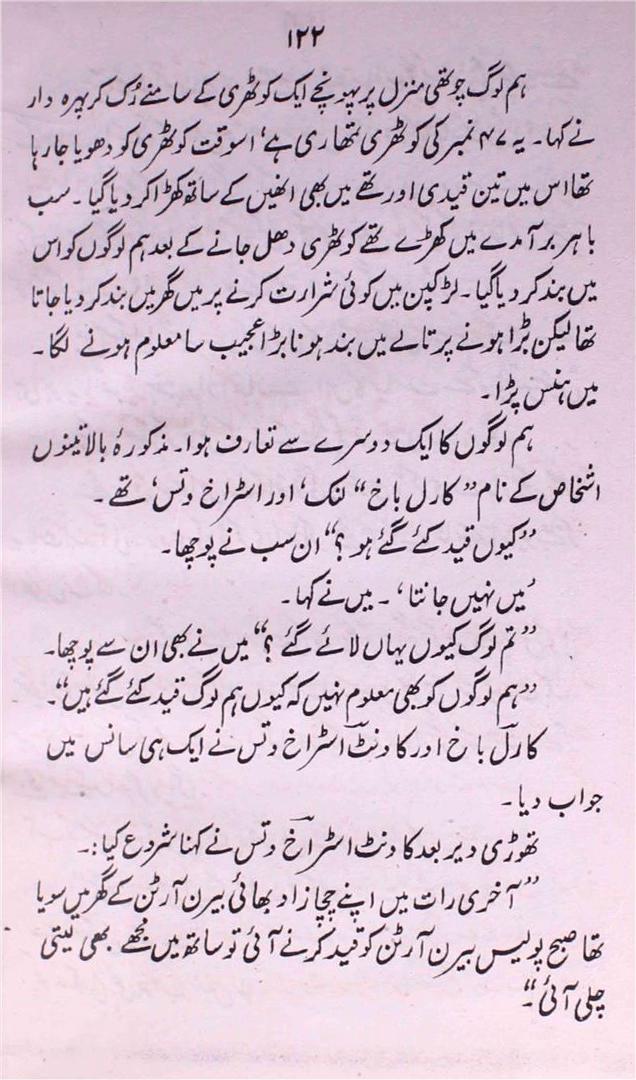 ۱۲۲
ہم لوگ چوتھی منزل پر پہونچے ایک کوٹھری کے سامنے رُک کر پہرہ دار
نے کہا۔ یہ ۴۷ نمبر کی کوٹھری تمھاری ہے، اسوقت کوٹھری کو دھویا جا رہا
تھا اس میں تین قیدی اور تھے میں بھی انھیں کے ساتھ کھڑا کر دیا گیا۔ سب
باہر برآمدے میں کھڑے تھے کوٹھری دھل جانے کے بعد ہم لوگوں کو اس
میں بند کر دیا گیا۔ لڑکپن میں کوئی شرارت کرنے پر میں گھر میں بند کر دیا جاتا
تھا لیکن بڑا ہونے پر تالے میں بند ہونا بڑا عجیب سا معلوم ہونے لگا۔
میں ہنس پڑا۔
ہم لوگوں کا ایک دوسرے سے تعارف ہوا۔ مذکورۂ بالا تینوں
اشخاص کے نام ”کارل باخ“ لنک، اور اسٹراخ وتس، تھے۔
”کیوں قید کئے گئے ہو؟“ ان سب نے پوچھا۔
’میں نہیں جانتا‘۔ میں نے کہا۔
”تم لوگ کیوں یہاں لائے گئے؟“ میں نے بھی ان سے پوچھا۔
”ہم لوگوں کو بھی معلوم نہیں کہ کیوں ہم لوگ قید کئے گئے ہیں“۔
کارل باخ اور کاونٹ اسٹراخ وتس نے ایک ہی سانس میں
جواب دیا۔
تھوڑی دیر بعد کاونٹ اسٹراخ وتس نے کہنا شروع کیا:۔
”آخری رات میں اپنے چچا زاد بھائی بیرن آرٹن کے گھر میں سویا
تھا صبح پولیس بیرن آرٹن کو قید کرنے آئی تو ساتھ میں مجھے بھی لیتی
چلی آئی۔“